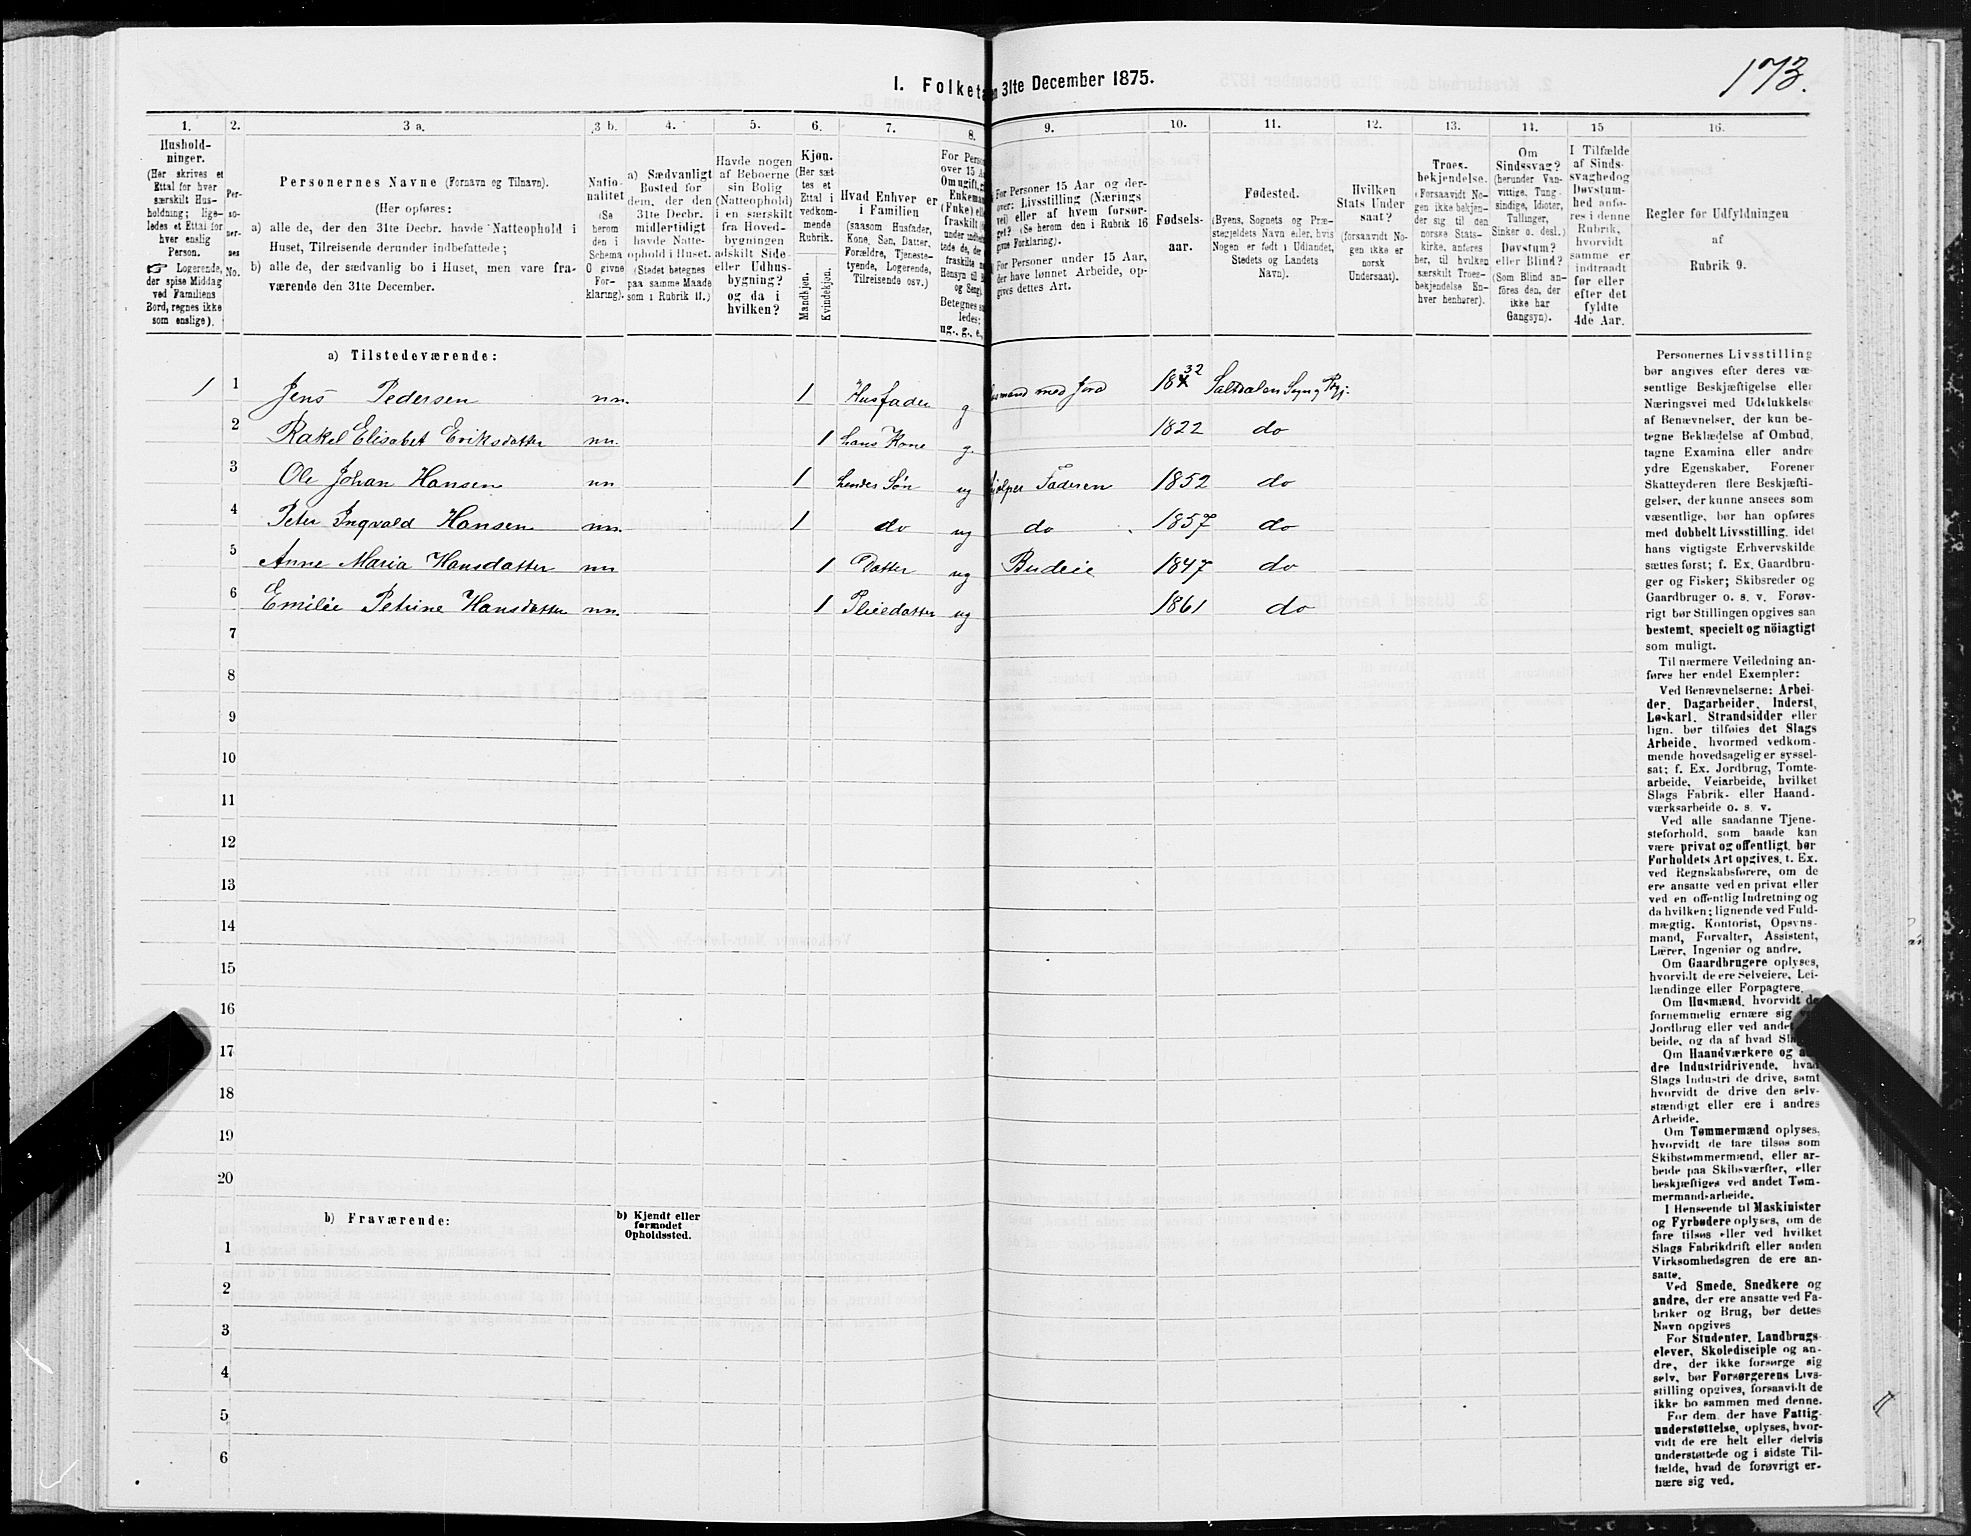 173.
I. Folketa
en 31te December 1875.
1. 2. 3 a. 3 b. 4. 5. 6. 7. 8. 9. 10. 11. 12. 13. 14. 15 16.
Hushold-
ninger.
(Her skrives et
Ettal for hver
særskilt Hus-
holdning; lige-
ledes et Ettal for
hver enslig
Person.
☞ Logerende,
der spise Middag
ved Familiens
Bord, regnes ikke
som enslige).
Per-
so-
ner-
nes
No.
Personernes Navne (Fornavn og Tilnavn).
(Her opføres:
a) alle de, der den 31te Decbr. havde Natteophold i
Huset, Tilreisende derunder indbefattede;
b) alle de, der sædvanlig bo i Huset, men vare fra-
værende den 31te December.
Natio-
nalitet
(Se
herom
den i
Schema
O givne
For-
klaring).
a) Sædvanligt
Bosted for
dem, der den
31te Decbr.
midlertidigt
havde Natte-
ophold i Huset.
(Stedet betegnes
paa samme Maade
som i Rubrik 11.)
Havde nogen
af Beboerne
sin Bolig
(Natteophold)
i en særskilt
fra Hoved-
bygningen
adskilt Side-
eller Udhus-
bygning?
og da i
hvilken?
Kjøn.
(Her sæt-
tes et
Ettal i
vedkom-
mende
Rubrik.
Mandkjøn.
Kvindekjøn.
Hvad Enhver er
i Familien
(saasom Husfader,
Kone, Søn, Datter,
Forældre, Tjeneste-
tyende, Logerende,
Tilreisende osv.)
For Perso
over 15 A
Om ugift, g
Enkeman
(Fnke) ell
fraskilt
og Seng
Betegnes s
ledes:
ug., g., e.,
For Personer 15 Aar og der-
over: Livsstilling (Nærings
vei) eller af hvem forsør-
get? (Se herom den i Rubrik 16
givne Forklaring).
For Personer under 15 Aar,
der have lønnet Arbeide, op-
gives dettes Art.
Fødsels-
aar.
Fødested.
(Byens, Sognets og Præ-
stegjeldets Navn eller, hvis
Nogen er født i Udlandet,
Stedets og Landets
Navn).
Hvilken
Stats Under
saat?
(forsaavidt No-
gen ikke er
norsk
Undersaat).
Troes-
bekjendelse.
(Forsaavidt No-
gen ikke bekjen-
der sig til den
norske Stats-
kirke, anføres
her, til hvilken
særskilt Troes-
bekjendelse En-
hver henhører).
Om
Sindssvag?
(herunder Van-
vittige, Tung-
sindige, Idioter,
Tullinger,
Sinker o. desl.)
Døvstum?
eller Blind?
(Som Blind an-
føres den, der
ikke har
Gangsyn).
I Tilfælde
af Sinds-
svaghed og
Døvstum-
hed anfø-
res i denne
Rubrik,
hvorvidt
samme er
indtraadt
før eller
efter det
fyldte
4de Aar.
Regler for Udfyldningen
af
Rubrik 9.
a) Tilstedeværende:
1 1 Jens Pedersen nn. 1 Husfader g mand med Jord 1832 Saltdalen Sogn og Pgj.
2 Rakel Elisabet Eriksdatter nn. 1 hans Kone g. 1822 do
3 Ole Johan Hansen nn 1 hendes Søn ug hjelper Faderen 1852 do
4 Peter Ingvald Hansen nn. 1 do ug do 1857 do
5 Anne Maria Hansdatter nn 1 Datter ug Budeie 1847 do
6 Emilie Petrine Hansdatter nn. 1 Pleiedatter ug 1861 do
7
8
9
10
11
12
13
14
15
16
17
18
19
20
b) Fraværende:
b) Kjendt eller
formodet
Opholdssted.
1
2
3
4
5
6
Personernes Livsstilling
bør angives efter deres væ-
sentlige Beskjæftigelse eller
Næringsvei med Udelukkelse
af Benævnelser, der kun be-
tegne Beklædelse af Ombud,
tagne Examina eller andre
ydre Egenskaber. Forener
Skatteyderen flere Beskjæfti-
gelser, der kunne ansees som
væsentlige, bør han opføres
med dobbelt Livsstilling, idet
hans vigtigste Erhvervskilde
sættes først; f. Ex. Gaardbru-
ger og Fisker; Skibsreder og
Gaardbruger o. s. v. Forøv-
rigt bør Stillingen opgives saa
bestemt, specielt og nöiagtigt
som muligt.
Til nærmere Veiledning an-
føres her endel Exempler:
Ved Benævnelserne: Arbei-
der, Dagarbeider, Inderst,
Løskarl, Strandsidder eller
lign. bør tilføies det Slags
Arbeide, hvormed vedkom-
mende hovedsagelig er syssel-
sat; f. Ex. Jordbrug, Tomte-
arbeide, Veiarbeide, hvilket
Slags Fabrik- eller Haand-
værksarbeide o. s. v.
Ved alle saadanne Tjene-
steforhold, som baade kan
være privat og offentligt, bør
Forholdets Art opgives, t. Ex.
ved Regnskabsførere, om de
ere ansatte ved en privat eller
ved en offentlig Indretning og
da hvilken; lignende ved Fuld-
mægtig, Kontorist, Opsyns-
mand, Forvalter, Assistent,
Lærer, Ingeniør og andre.
Om Gaardbrugere oplyses,
hvorvidt de ere Selveiere, Lei-
lændinge eller Forpagtere.
Om Husmænd, hvorvidt de
fornemmelig ernære sig
Jordbrug eller ved andet
beide, og da af hvad
Om Haandværkere og
dre Industridrivende, hvad
Slags Industri de drive, samt
hvorvidt de drive den selv-
stændigt eller ere i andres
Arbeide.
Om Tømmermænd oplyses,
hvorvidt de fare tilsøs som
Skibstømmermænd, eller ar-
beide paa Skibsværfter, eller
beskjæftiges ved andet Tøm-
mermandsarbeide.
I Henseende til Maskinister
og Fyrbødere oplyses, om de
fare tilsøs eller ved hvilket
Slags Fabrikdrift eller anden
Virksomhedsgren de ere an-
satte.
Ved Smede, Snedkere og
andre, der ere ansatte ved Fa-
briker og Brug, bør dettes
Navn opgives
For Studenter, Landbrugs-
elever, Skoledisciple og an-
dre, der ikke forsørge sig
selv, bør Forsørgerens Livs-
stilling opgives, forsaavidt de
ikke bo sammen med denne.
For dem, der have Fattig-
understøttelse, oplyses, hvor-
vidt de ere helt eller delvis
understøttede og i sidste Til-
fælde, hvad de forøvrigt er-
nære sig ved.